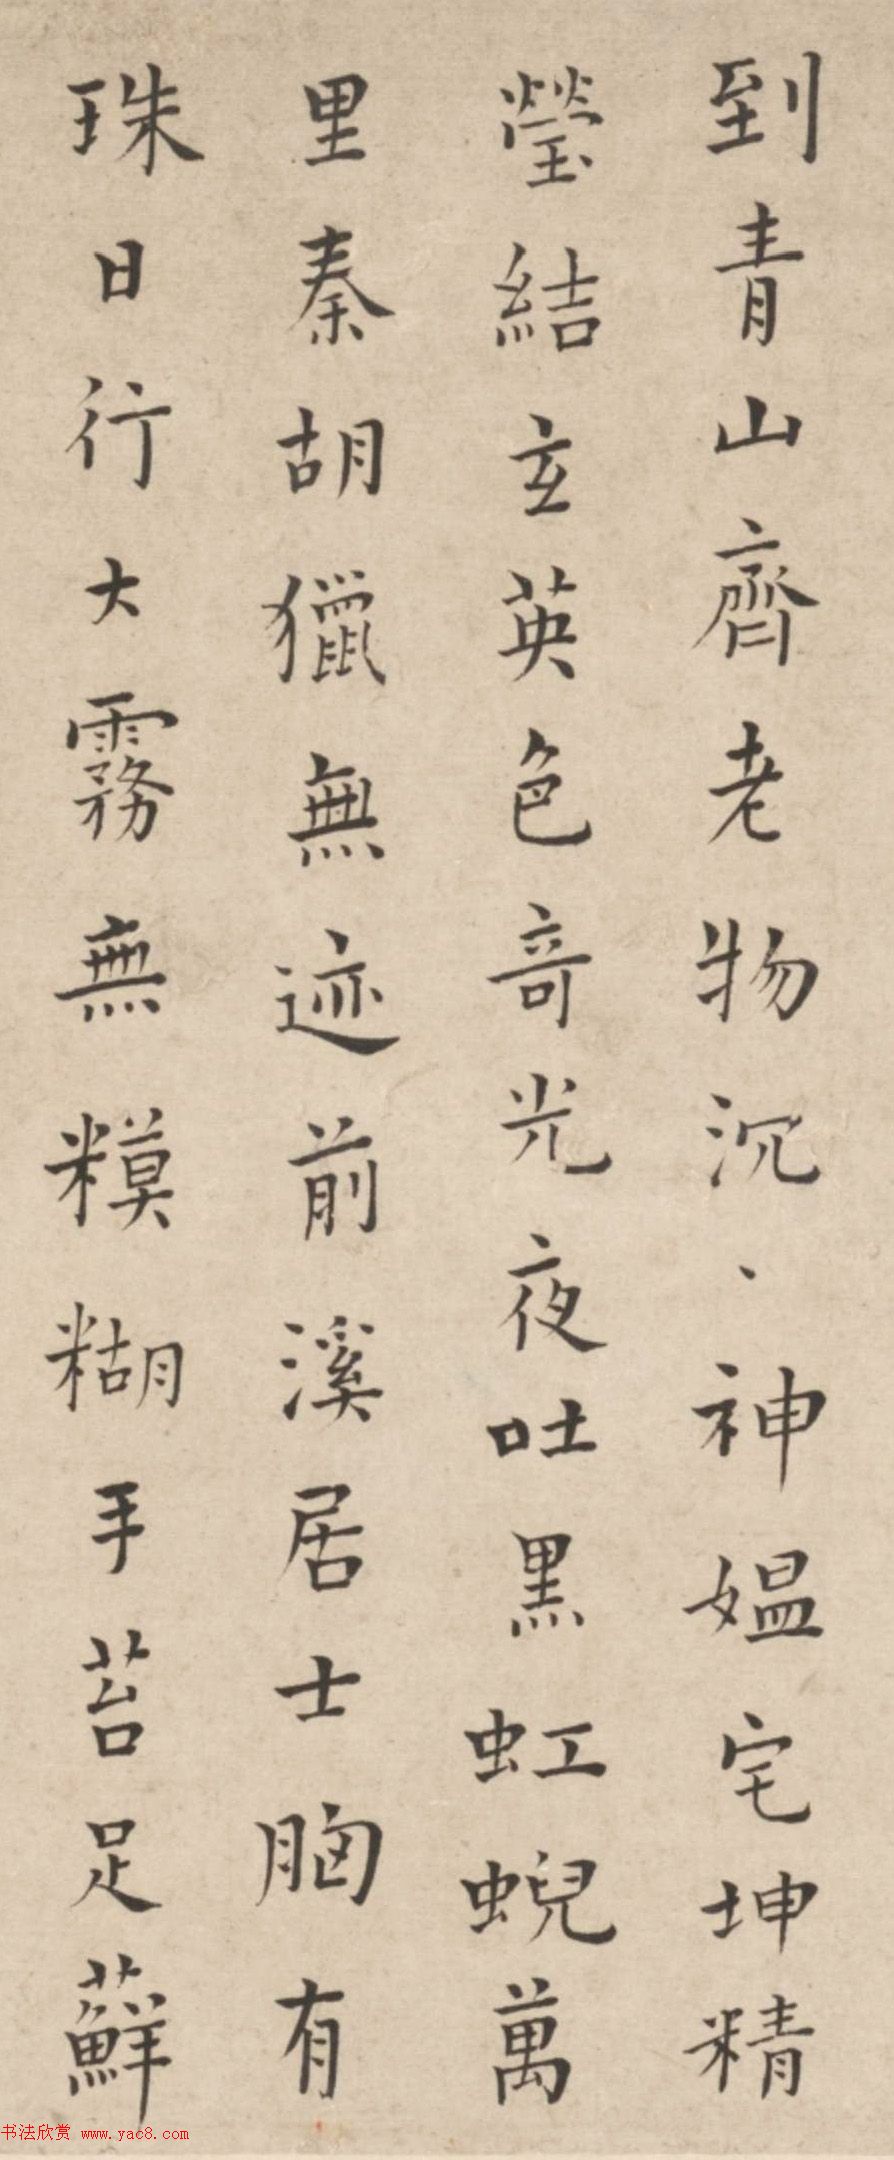 到青山齊老物沉、神媪宅坤精
瑩結玄英色奇光夜吐黑虹蜺萬
里秦胡獵無迹前溪居士胸有
珠日行大霧無糢糊手苔足蘚
书法欣赏 www.yac8.com